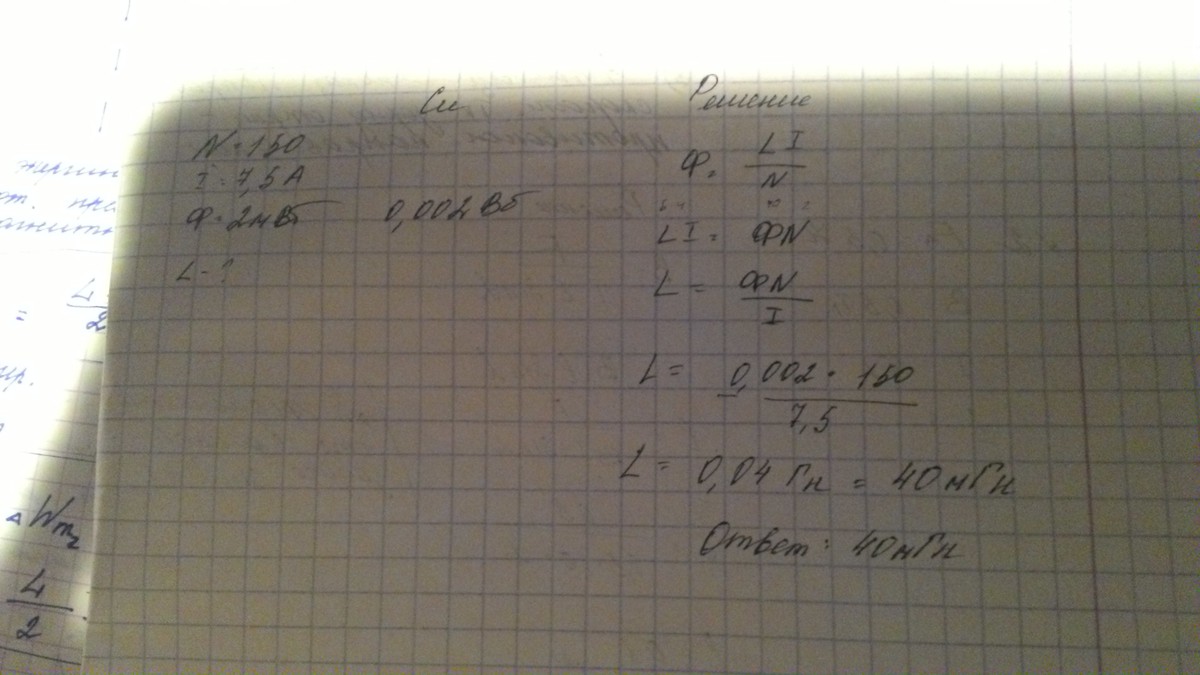 Си
N = 150
I = 7,5 А
Ф = 2мВб 0,002 Вб
L - ?
Решение
Ф = LI / N
LI = ФN
L = ФN / I
L = 0,002 · 150 / 7,5
L = 0,04 Гн = 40 мГн
Ответ: 40 мГн
= L / 2
Wm2
L / 2